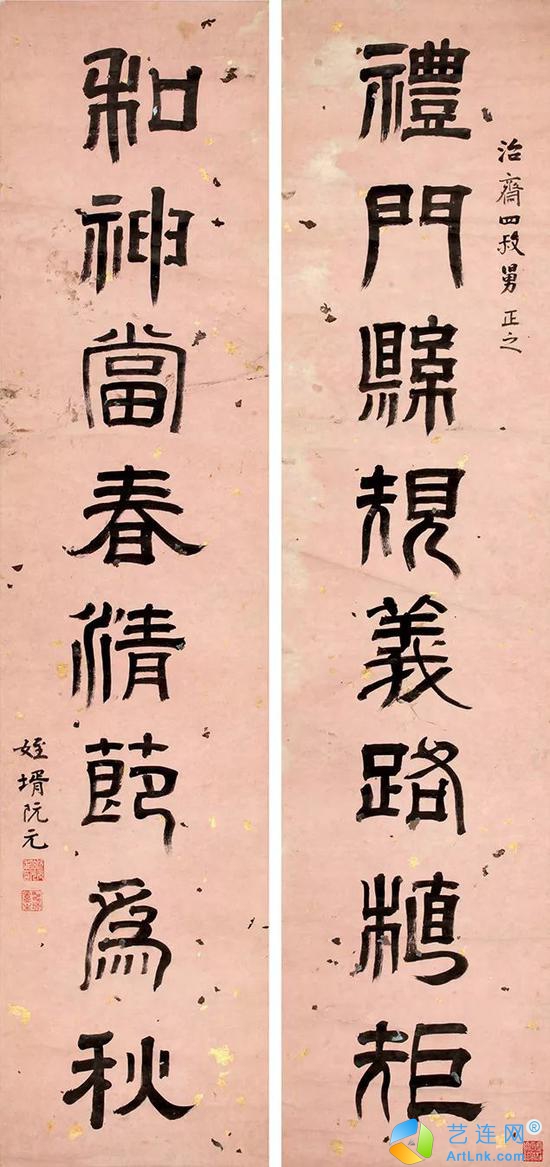 治齋四叔舅正之
禮門縣規義路植矩
和神當春清節為秋
姪壻阮元
艺连网®
ArtLnk.com